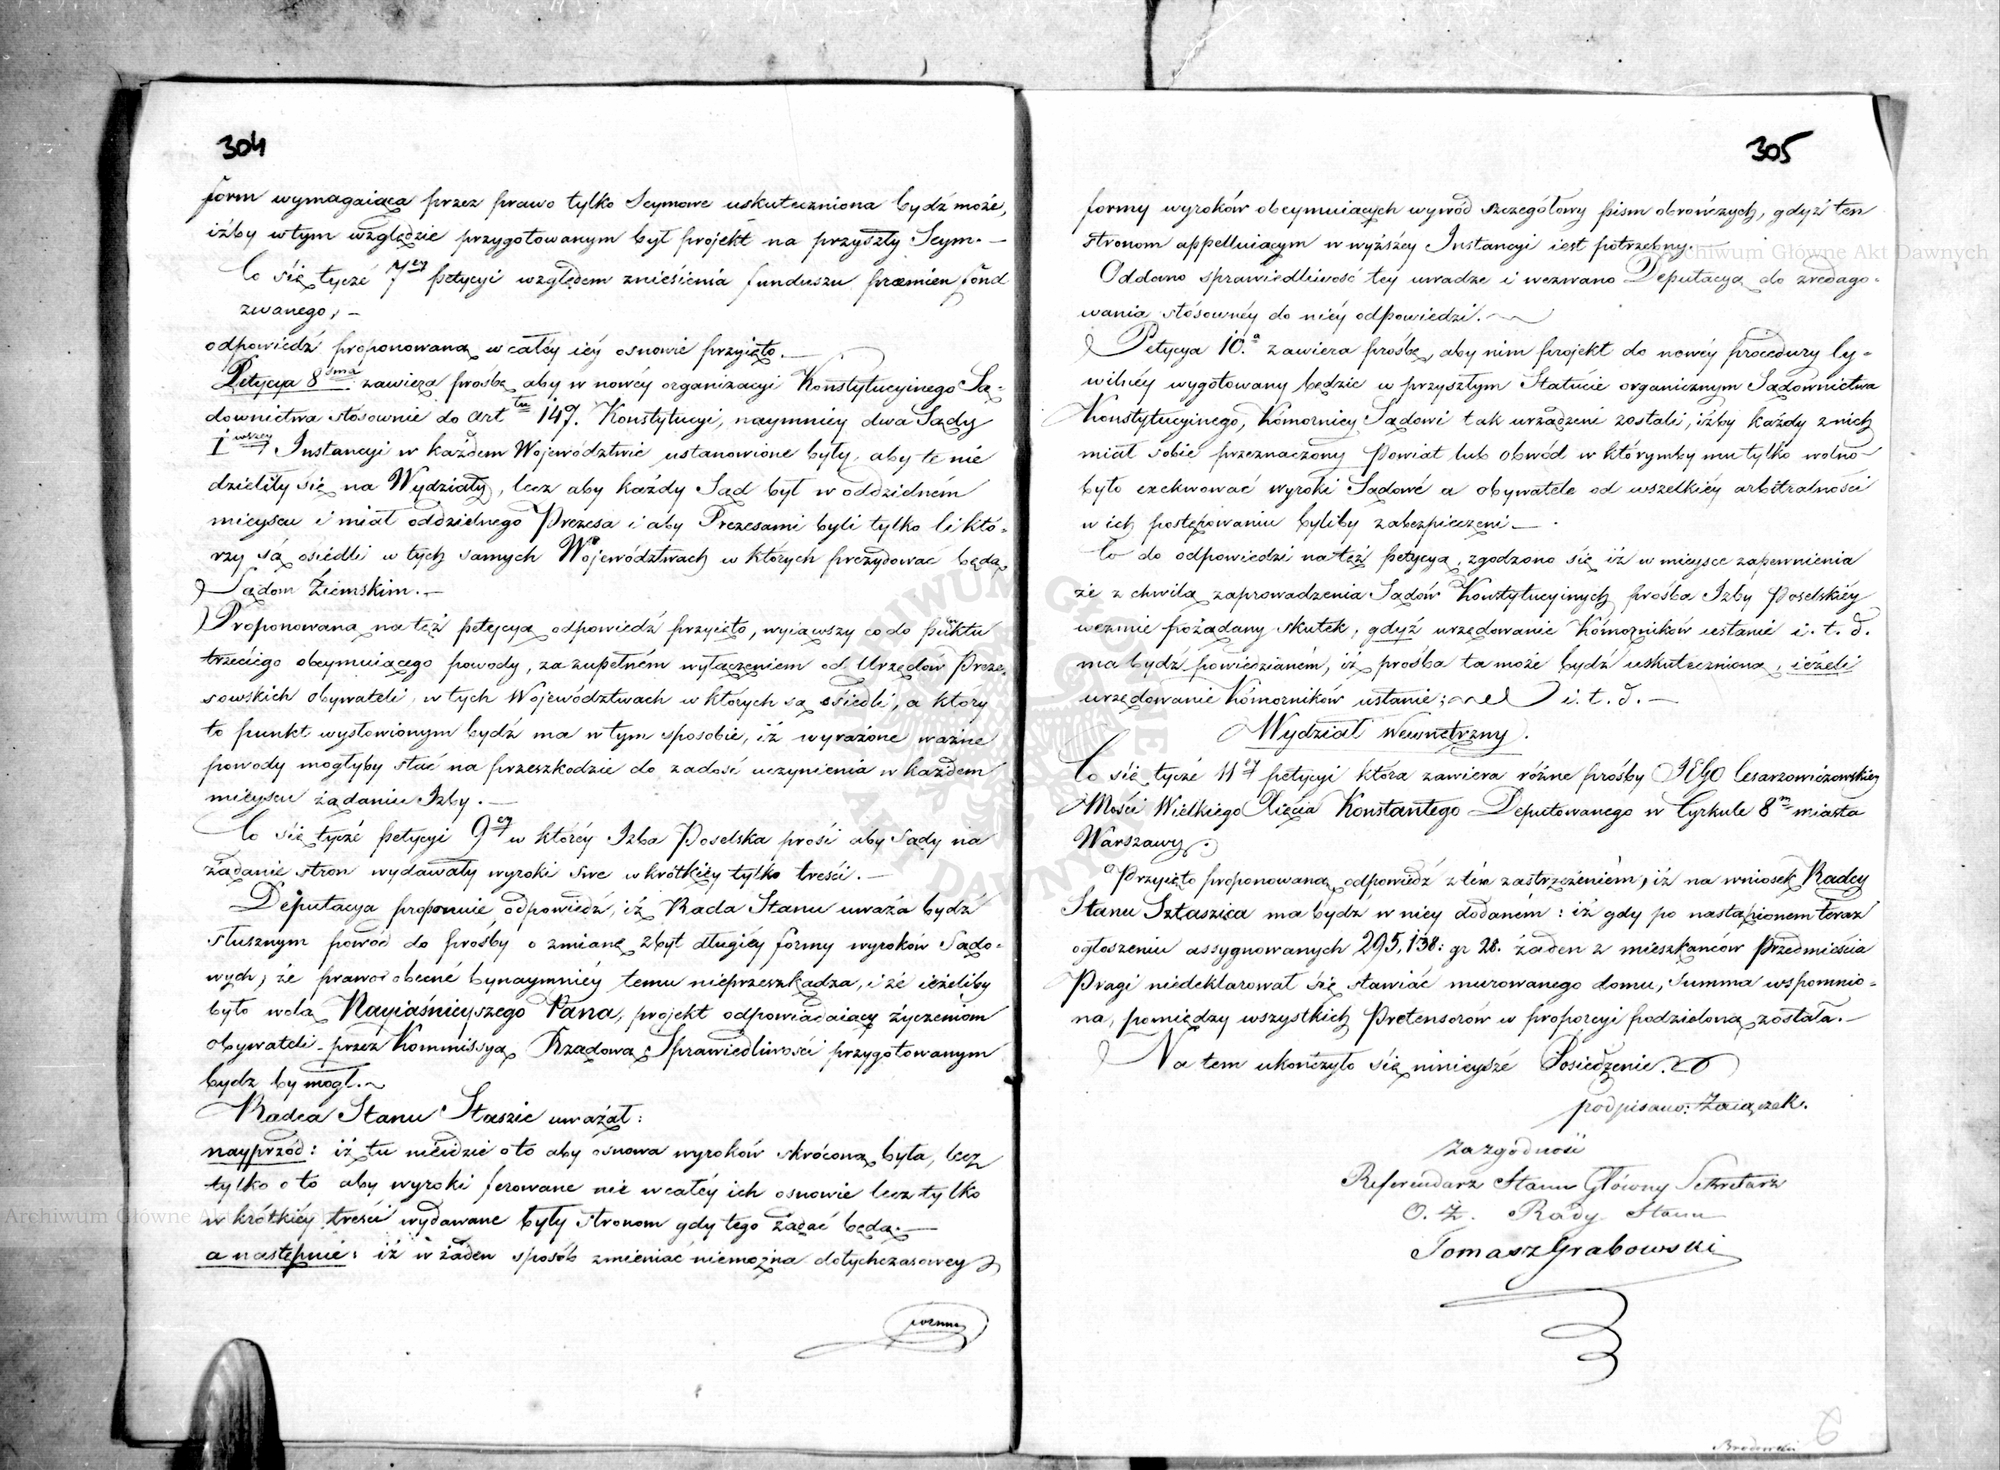 304
form wymagaiąca przez prawo tylko Seymowe uskuteczniona bydź może,
iżby wtym względzie przygotowanym był projekt na przyszły Seym. —
Co się tycze 7ey petycyi względem zniesienia funduszu præmien fond
zwanego, —
odpowiedź proponowaną w całey iey osnowie przyięto. —
Petycya 8sma zawiera prośbę aby w nowey organizacyi Konstytucyinego Są-
downictwa stósownie do Arttu 147. Konstytucyi, naymniey dwa Sądy
Iwszey Instancyi w każdem Województwie ustanowione były, aby te nie
dzieliły się na Wydziały, lecz aby każdy Sąd był w oddzielném
mieyscu i miał oddzielnego Prezesa i aby Prezesami byli tylko li któ-
rzy są osiedli w tych samych Województwach w których prezydować będą
Sądom Ziemskim. —
Proponowaną na też petycyą odpowiedź przyięto, wyiąwszy co do punktu
trzeciego obeymuiącego powody, za zupełném wyłączeniem od Urzędów Preze-
sowskich obywateli, w tych Województwach w których są osiedli, a który
to punkt wysłowionym bydź ma w tym sposobie, iż wyrażone ważne
powody mogłyby stać na przeszkodzie do zadość uczynienia w każdem
mieyscu żądaniu Izby. —
Co się tycze petycyi 9ey w którey Izba Poselska prosi aby Sądy na
żądanie stron wydawały wyroki swe w krótkiey tylko treści. —
Deputacya proponuie odpowiedź, iż Rada Stanu uważa bydź
słusznym powód do prośby o zmianę zbyt długiey formy wyroków Sądo-
wych, że prawo obecné bynaymniéy temu nieprzeszkadza, i że ieżeliby
było wolą Nayiaśnieyszego Pana, projekt odpowiadaiący życzeniom
obywateli przez Kommissyą Rządową Sprawiedliwości przygotowanym
bydz by mogł.
Radca Stanu Staszic uważał:
nayprzód: iż tu nieidzie oto aby osnowa wyroków skróconą była, lecz
tylko o to aby wyroki ferowane nie w całéy ich osnowie lecz tylko
w krótkiey treści wydawane były stronom gdy tego żądać będą. —
a następnie: iż w żaden sposób zmieniać niemożna dotychczasowey
305
formy wyroków obeymuiących wywód szczegółowy pism obrończych, gdyż ten
stronom appelluiącym w wyższey Instancyi iest potrzebny. —
Oddano sprawiedliwość tey uwadze i wezwano Deputacyą do zredago-
wania stósownéy do niéy odpowiedzi.
Petycya 10.a zawiera prośbę, aby nim projekt do nowéy procedury Cy-
wilnéy wygotowany będzie w przyszłym Statucie organicznym Sądownictwa
Konstytucyinego, Kómornicy Sądowi tak urządzeni zostali, iżby każdy z nich
miał sobie przeznaczony Powiat lub obwód w którymby mu tylko wolno
było exekwować wyroki Sądowé a obywatele od wszelkiéy arbitralności
w ich postępowaniu byliby zabezpieczeni —.
Co do odpowiedzi na też petycyą, zgodzono się iż w mieysce zapewnienia
że z chwilą zaprowadzenia Sądów Konstytucyinych prośba Izby Poselskiéy
weźmie pożądany skutek, gdyż urzędowanie Kómorników ustanie i. t. d.
ma bydź powiedzianém, iż prośba ta może bydź uskuteczniona, ieżeli
urzędowanie Kómorników ustanie; i. t. d. —
Wydział Wewnętrzny.
Co się tycze 11ey petycyi która zawiera różne prośby JEGO Cesarzowiczowskiey
Mości Wielkiego Xięcia Konstantego Deputowanego w Cyrkule 8m miasta
Warszawy.
Przyięto proponowaną odpowiedź z tém zastrzeżeniem, iż na wniosek Radcy
Stanu Sztaszica ma bydź w niey dodaném: iż gdy po nastąpionem teraz
ogłoszeniu assygnowanych 295,138: gr 28. żaden z mieszkańców Przedmieścia
Pragi niedeklarował się stawiać murowanego domu, Summa wspomnio-
na, pomiędzy wszystkich Pretensorów w proporcyi podzieloną została. —
Na tem ukończyło się ninieysze Posiedzenie.
podpisano: Zaiączek.
Za zgodność
Referendarz Stanu Główny Sekretarz
Rady Stanu
Tomasz Grabowski
Archiwum Główne Akt Dawnych
Archiwum Główne Akt Dawnych